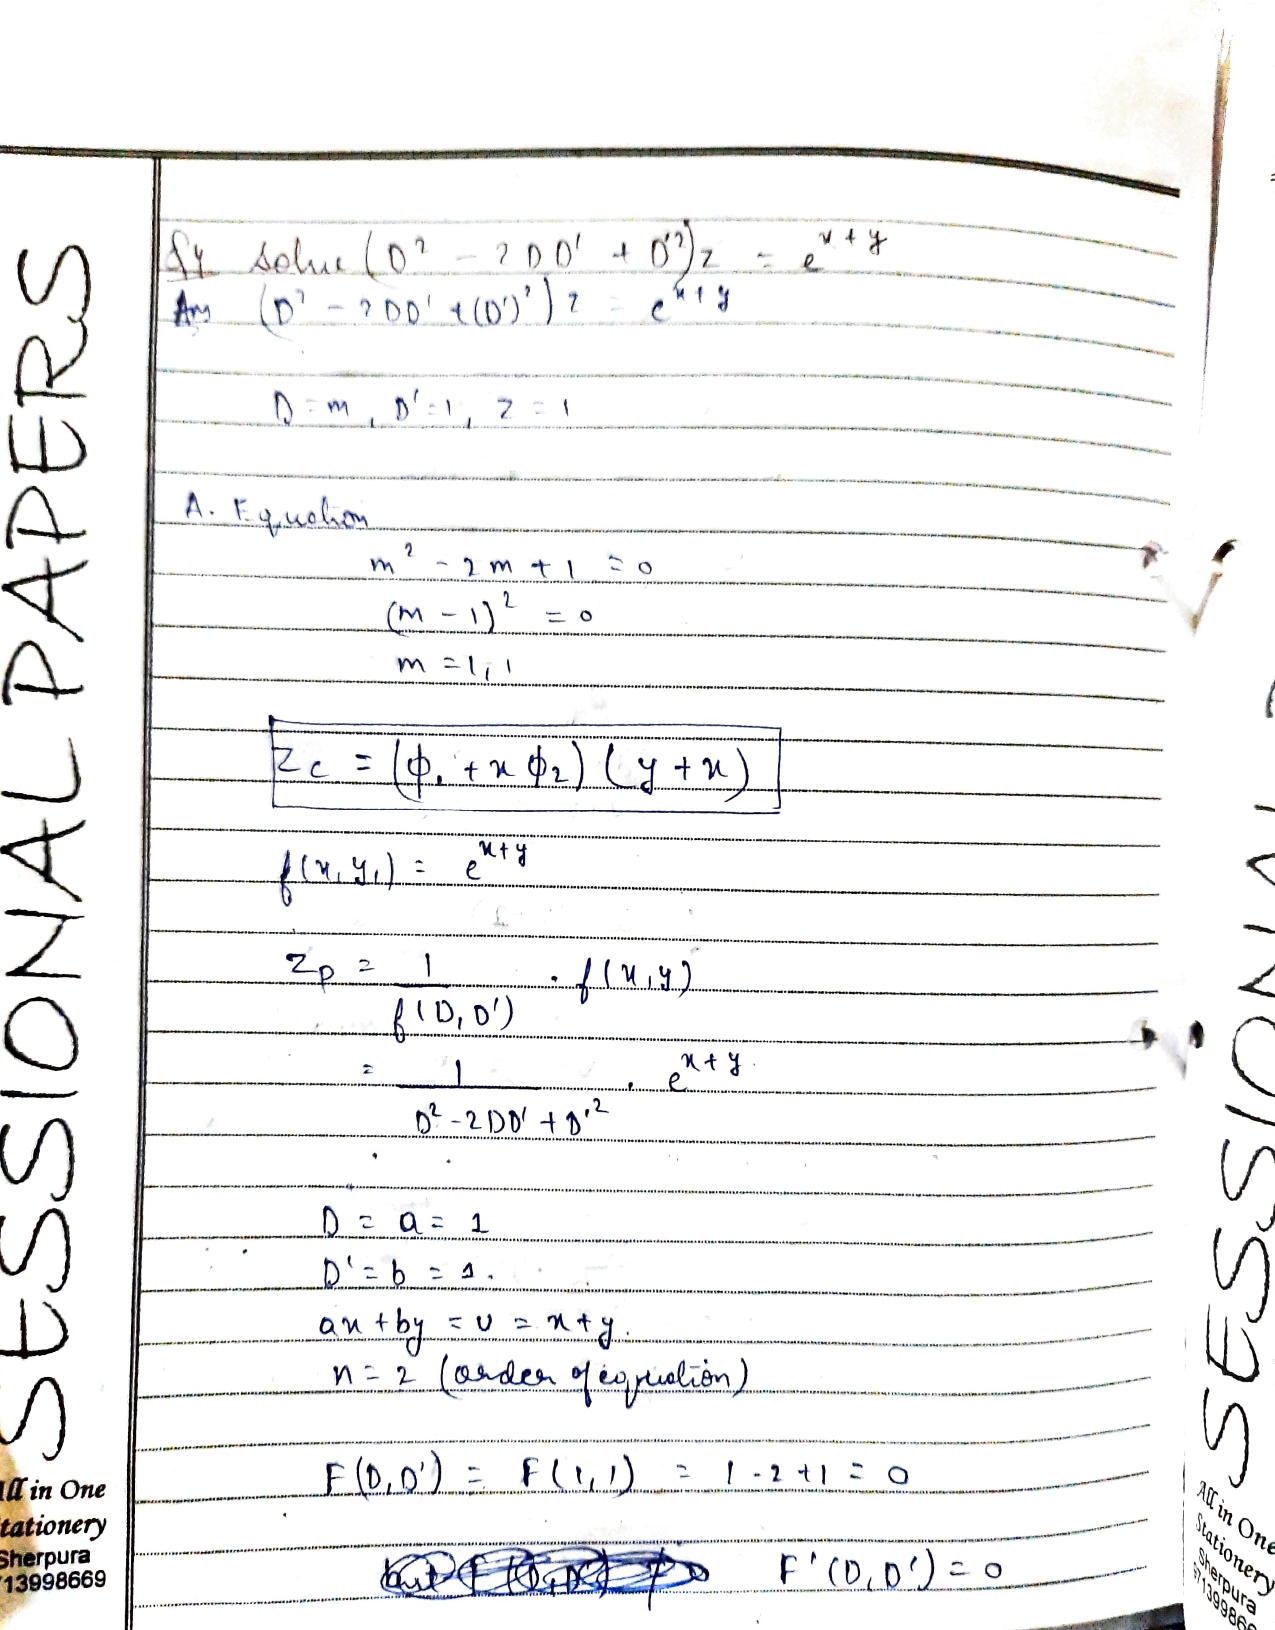 Q4 Solve (D² - 2DD' + D'²)z = e^{x+y}
Ans (D² - 2DD' + (D')²)z = e^{x+y}
D = m, D' = 1, z = 1
A. Equation
m² - 2m + 1 = 0
(m - 1)² = 0
m = 1, 1
z_c = (ϕ₁ + xϕ₂)(y + x)
f(x, y,) = e^{x+y}
z_p = 1 / f(D, D') . f(x, y)
= 1 / (D² - 2DD' + D'²) . e^{x+y}.
D = a = 1
D' = b = 1.
ax + by = v = x + y.
n = 2 (order of equation)
F(D, D') = F(1, 1) = 1 - 2 + 1 = 0
F'(D, D') = 0
SESSIONAL PAPERS
All in One
Stationery
Sherpura
13998669
SESSIONAL
All in One
Stationery
Sherpura